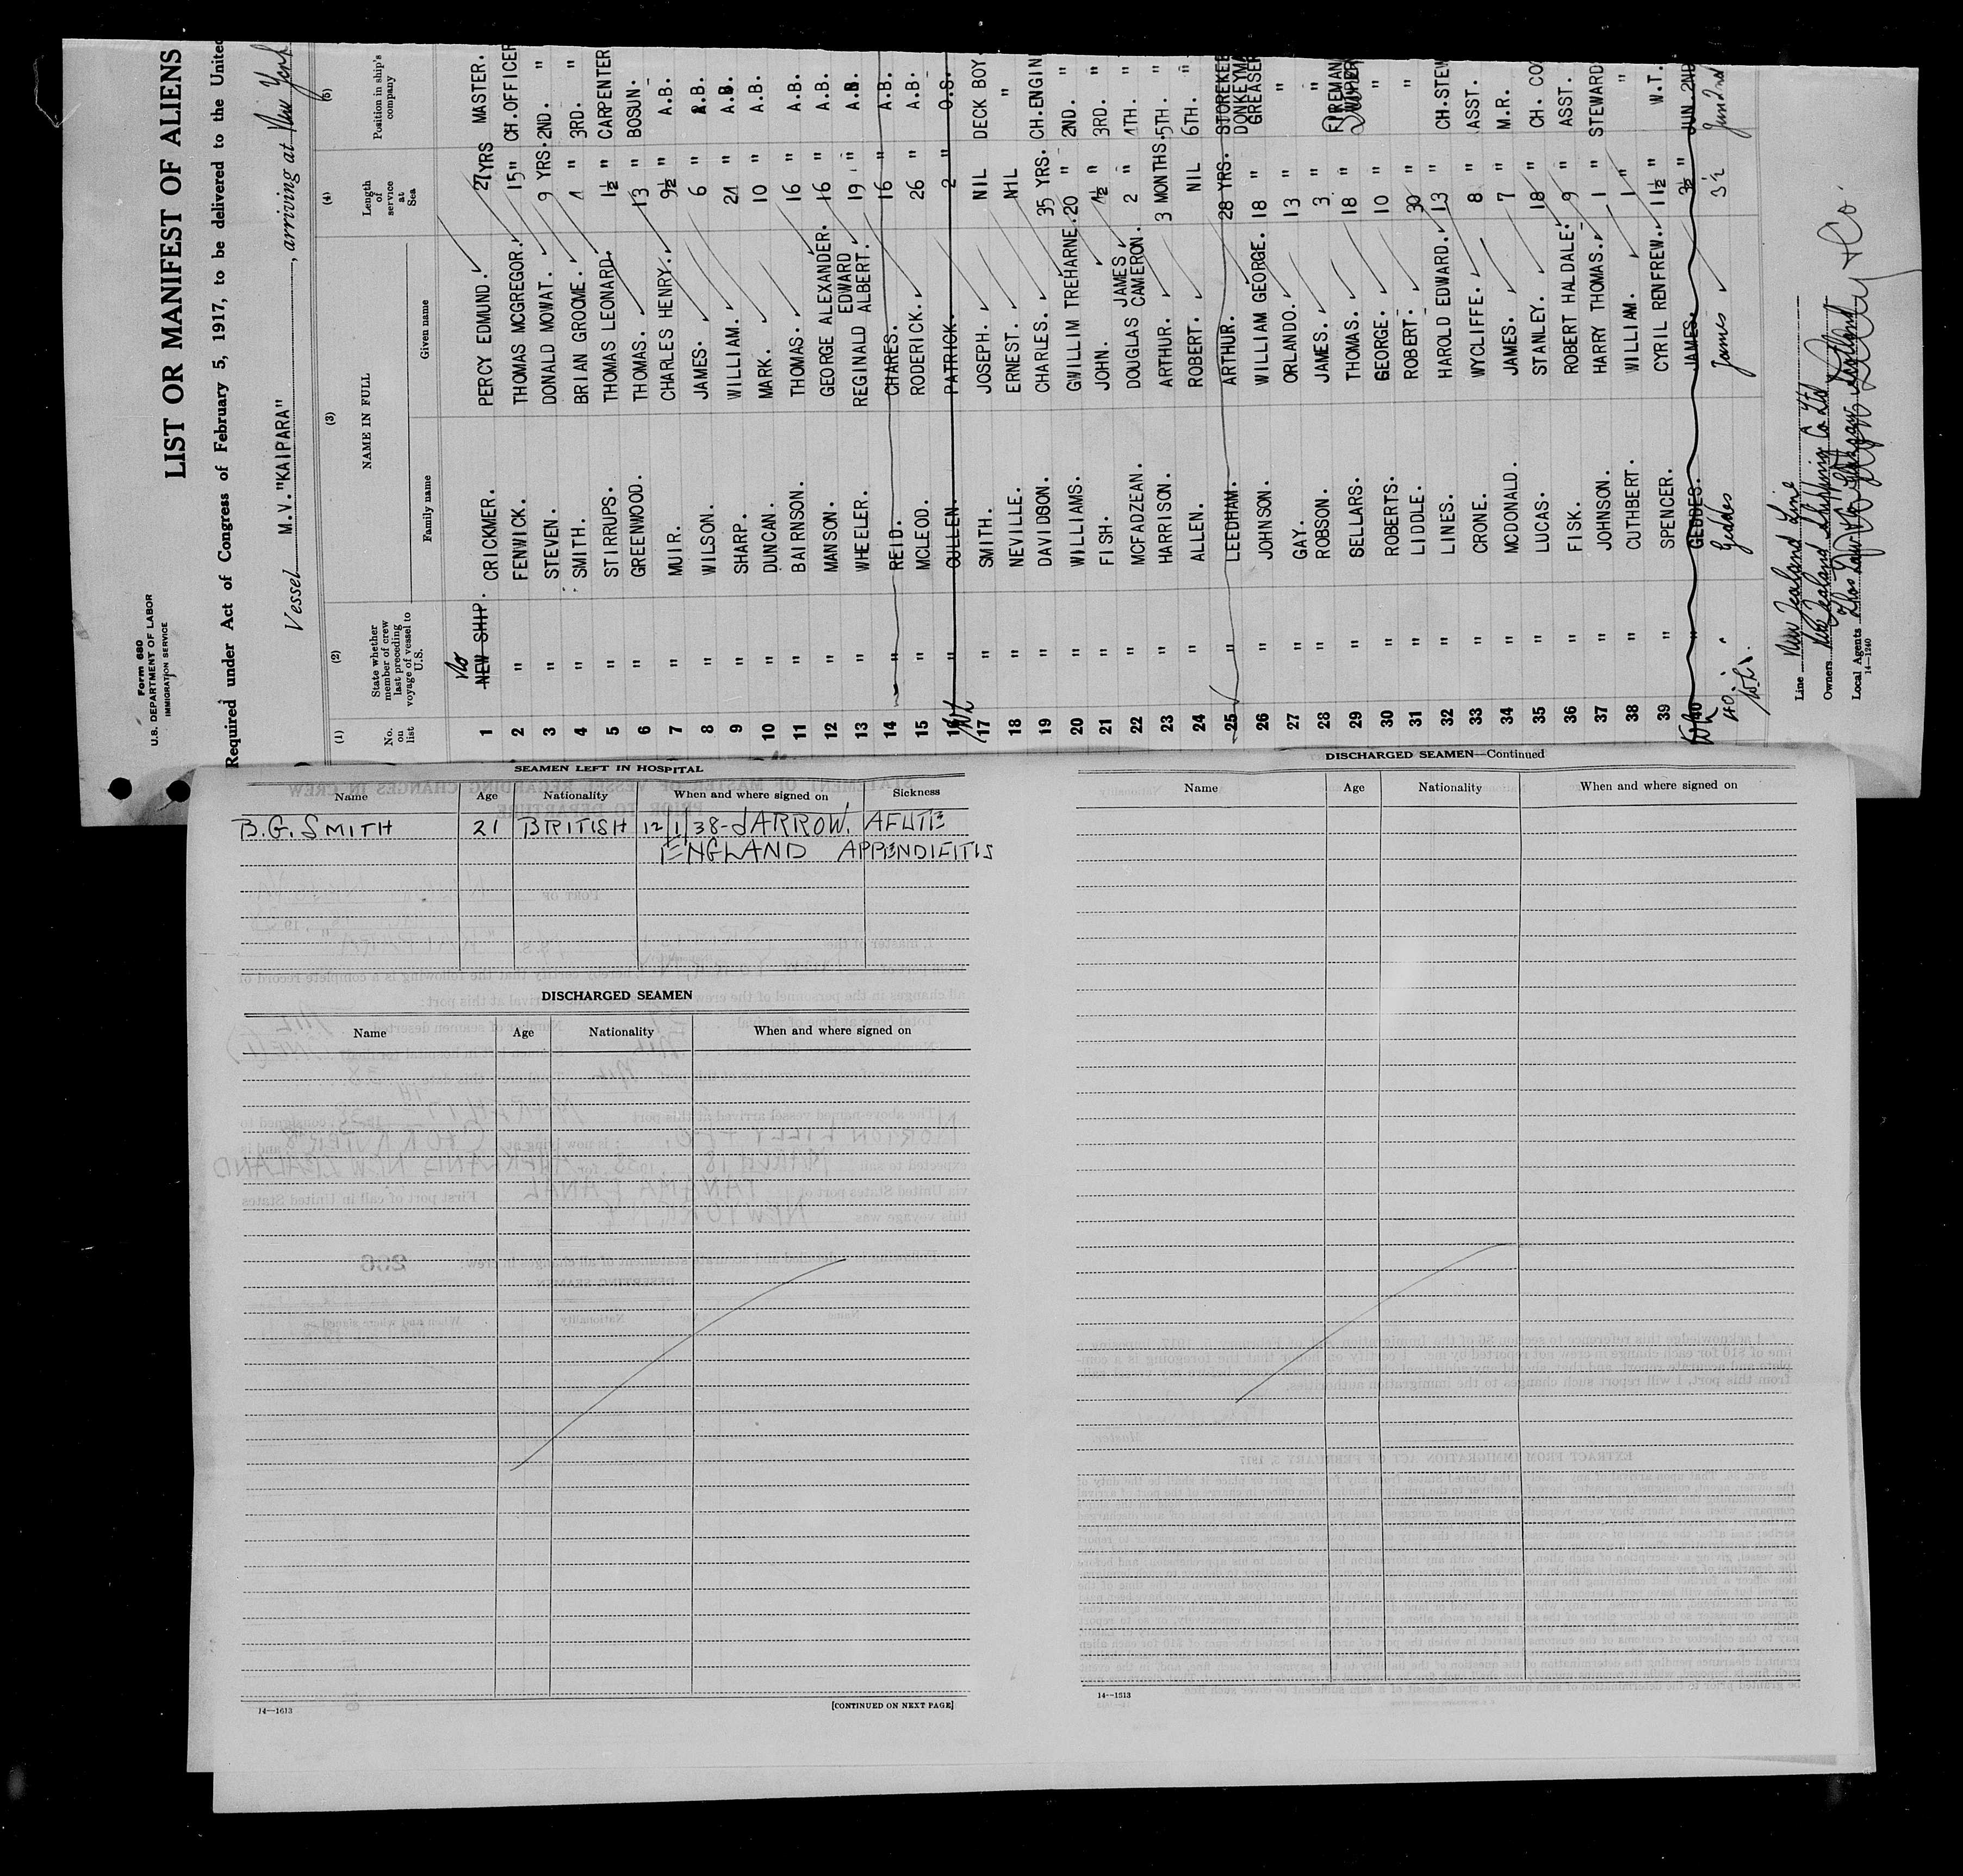 Form 680
U.S. DEPARTMENT OF LABOR
IMMIGRATION SERVICE
LIST OR MANIFEST OF ALIENS
Required under Act of Congress of February 5, 1917, to be delivered to the United
Vessel M.V."KAIPARA", arriving at New York
(1) (2) (3) (4) (5)
No. on list State whether member of crew last preceding voyage of vessel to U.S. NAME IN FULL Length of service at Sea Position in ship's company
Family name Given name
No
1 NEW SHIP. CRICKMER. PERCY EDMUND. 27 YRS MASTER.
2 " FENWICK. THOMAS MCGREGOR. 15 " CH.OFFICER
3 " STEVEN. DONALD MOWAT. 9 YRS. 2ND. "
4 " SMITH. BRIAN GROOME. 4 " 3RD. "
5 " STIRRUPS. THOMAS LEONARD. 1½ " CARPENTER
6 " GREENWOOD. THOMAS. 13 " BOSUN.
7 " MUIR. CHARLES HENRY. 9½ " A.B.
8 " WILSON. JAMES. 6 " A.B.
9 " SHARP. WILLIAM. 24 " A.B.
10 " DUNCAN. MARK. 10 " A.B.
11 " BAIRNSON. THOMAS. 16 " A.B.
12 " MANSON. GEORGE ALEXANDER. 16 " A.B.
13 " WHEELER. REGINALD EDWARD ALBERT. 19 " A.B.
14 " REID. CHARES. 16 " A.B.
15 " MCLEOD. RODERICK. 26 " A.B.
16 " CULLEN. PATRICK. 2 " O.S.
17 " SMITH. JOSEPH. NIL DECK BOY.
18 " NEVILLE. ERNEST. NIL "
19 " DAVIDSON. CHARLES. 35 YRS. CH.ENGIN
20 " WILLIAMS. GWILLIM TREHARNE. 20 " 2ND. "
21 " FISH. JOHN. 4½ " 3RD. "
22 " MCFADZEAN. DOUGLAS JAMES CAMERON. 2 " 4TH. "
23 " HARRISON. ARTHUR. 3 MONTHS. 5TH. "
24 " ALLEN. ROBERT. NIL 6TH. "
25 " LEEDHAM. ARTHUR. 28 YRS. STOREKEE
DONKEYMA
26 " JOHNSON. WILLIAM GEORGE. 18 " GREASER
27 " GAY. ORLANDO. 13 "
28 " ROBSON. JAMES. 3 " "
29 " SELLARS. THOMAS. 18 " FIREMAN
30 " ROBERTS. GEORGE. 10 " "
31 " LIDDLE. ROBERT. 30 " "
32 " LINES. HAROLD EDWARD. 13 " CH.STEW
33 " CRONE. WYCLIFFE. 8 " ASST.
34 " MCDONALD. JAMES. 7 " M.R.
35 " LUCAS. STANLEY. 18 " CH. CO
36 " FISK. ROBERT HALDALE. 9 " ASST.
37 " JOHNSON. HARRY THOMAS. 1 " STEWARD
38 " CUTHBERT. WILLIAM. 1 " "
39 " SPENCER. CYRIL RENFREW. 11½ " W.T.
40 " GEDDES. JAMES. 3½ " JUN 2ND
40. " Geddes James 3½ Jun 2nd
Line New Zealand Line
Owners New Zealand Shipping Co Ltd
Local Agents
14—1240
SEAMEN LEFT IN HOSPITAL
Name Age Nationality When and where signed on Sickness
B.G. SMITH 21 BRITISH 12/1/38- JARROW. ACUTE
ENGLAND APPENDICITIS
DISCHARGED SEAMEN
Name Age Nationality When and where signed on
14—1613
[CONTINUED ON NEXT PAGE]
DISCHARGED SEAMEN—Continued
Name Age Nationality When and where signed on
14—1513